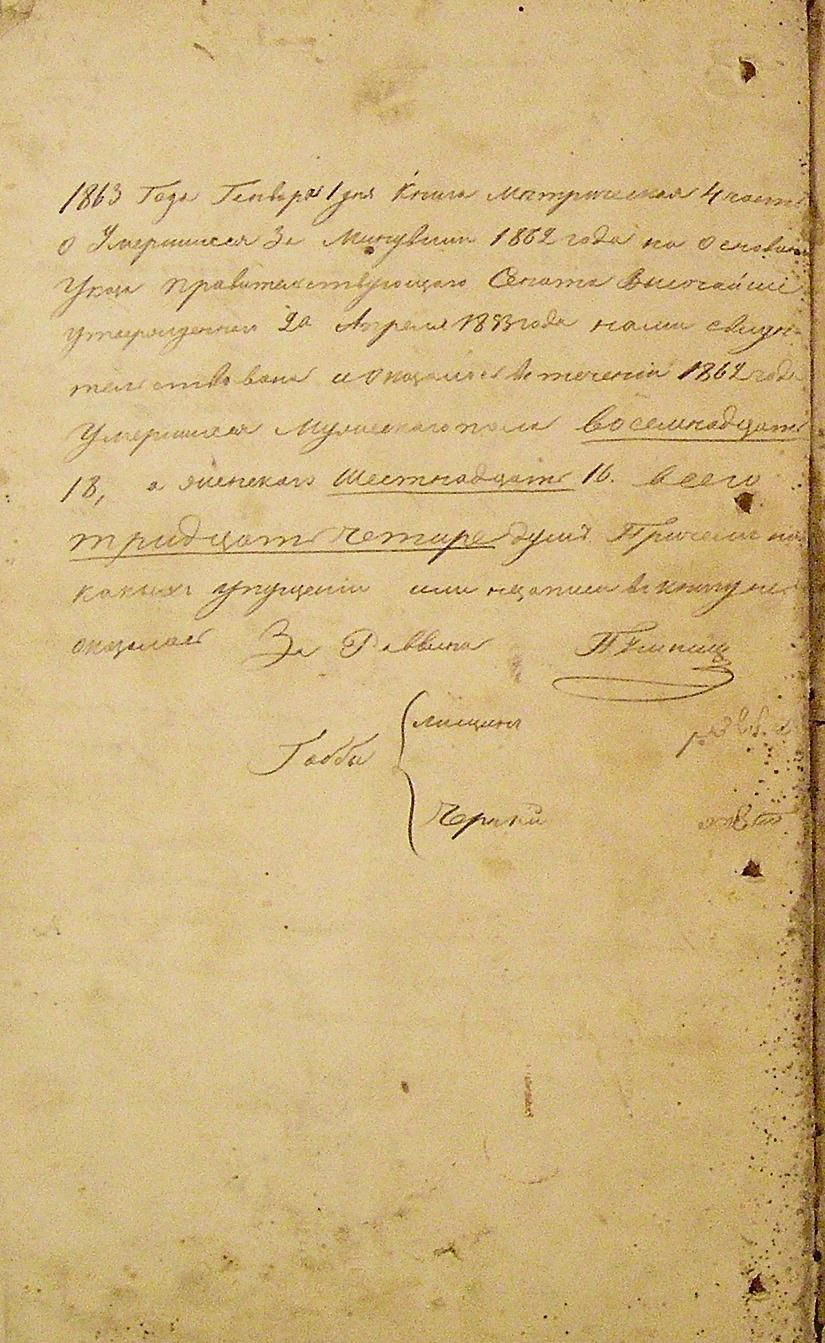 1863 Года Генваря 1 дня Книга Метрическая 4 часть
о Умершихся За Минувший 1862 года на основании
Указа Правительствующаго Сената Высочайше
утвержденнаго 20 Апреля 1853 года нами свиде-
тельствована и оказалось в течении 1862 года
Умершихся Мужескаго пола восемнадцать
18, а женскаго шестнадцать 16. всего
тридцать четыре душъ Причемъ ни
какихъ упущений или нецаписи в книгу не
оказалось За Раввина
Габбе